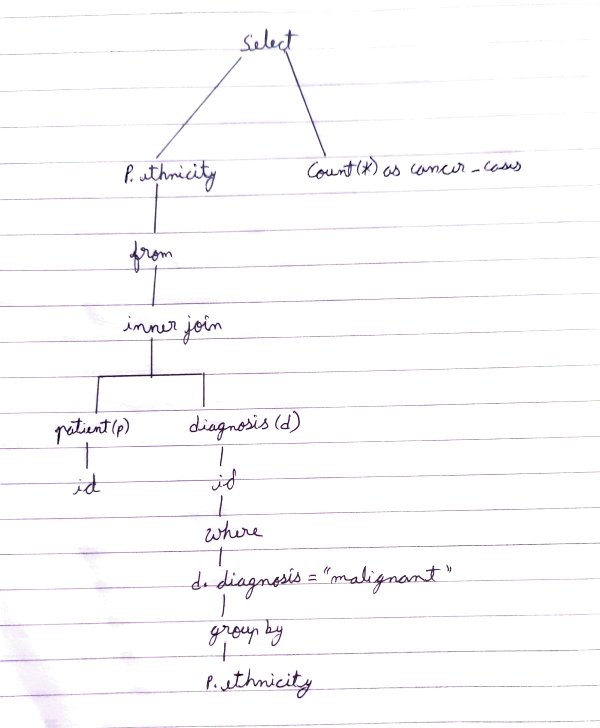 Select
P. ethnicity Count(*) as cancer_cases
from
inner join
patient(p) diagnosis (d)
id id
where
d. diagnosis = "malignant"
group by
P. ethnicity